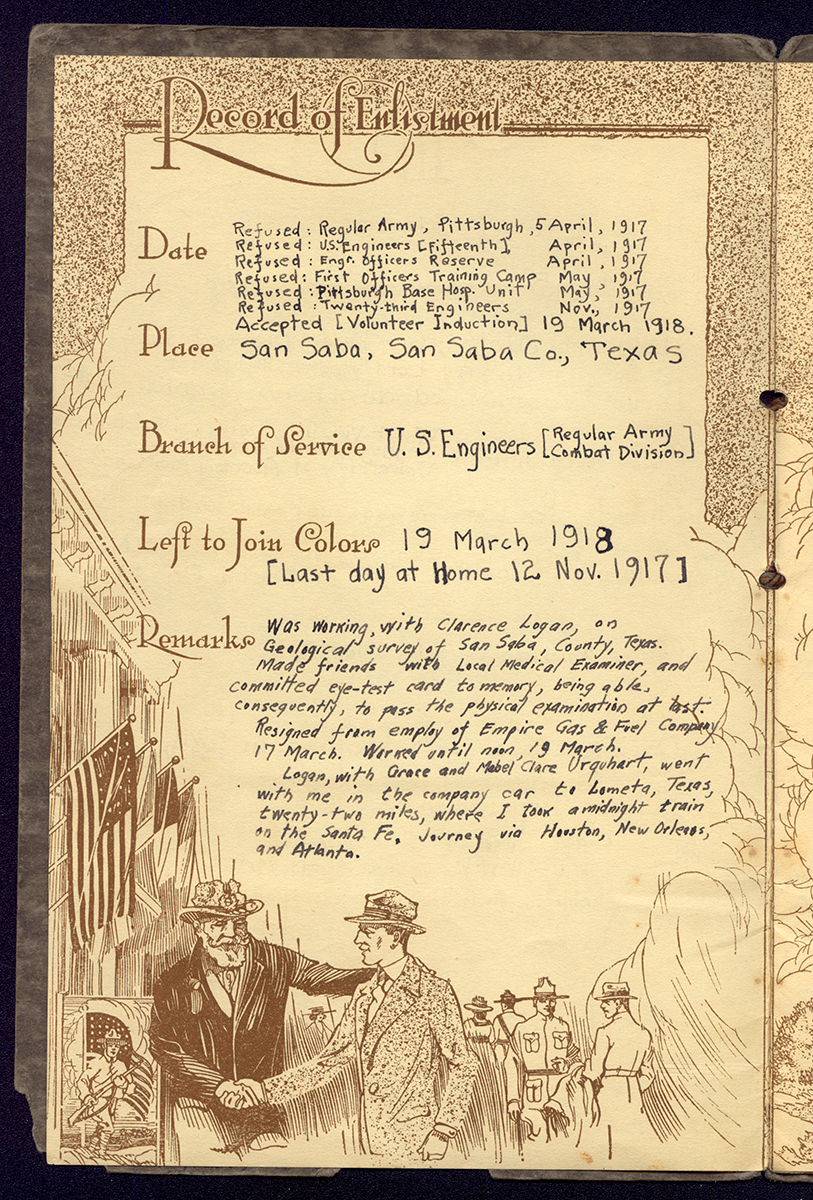 Record of Enlistment
Date
Refused: Regular Army, Pittsburgh, 5 April, 1917
Refused: U.S. Engineers [Fifteenth], April, 1917
Refused: Engr. Officers Reserve April, 1917
Refused: First Officers Training Camp May, 1917
Refused: Pittsburgh Base Hosp. Unit May, 1917
Refused: Twenty-third Engineers Nov., 1917
Accepted [Volunteer Induction] 19 March 1918.
Place San Saba, San Saba Co., Texas
Branch of Service U.S. Engineers [Regular Army
Combat Division]
Left to Join Colors 19 March 1918
[Last day at Home 12 Nov. 1917]
Remarks Was working, with Clarence Logan, on
Geological survey of San Saba, County, Texas.
Made friends with Local Medical Examiner, and
committed eye-test card to memory, being able,
consequently, to pass the physical examination at last.
Resigned from employ of Empire Gas & Fuel Company
17 March. Worked until noon, 19 March.
Logan, with Grace and Mabel Clare Urquhart, went
with me in the company car to Lometa, Texas,
twenty-two miles, where I took a midnight train
on the Santa Fe. Journey via Houston, New Orleans,
and Atlanta.